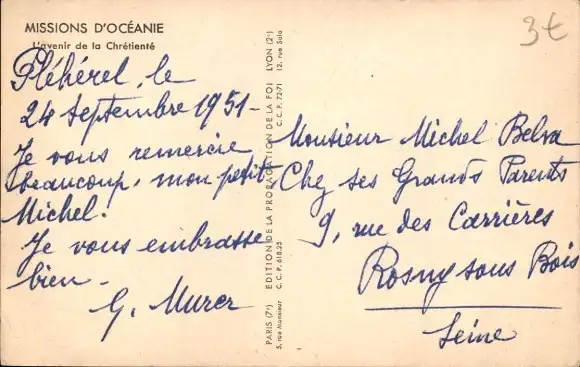 MISSIONS D'OCÉANIE
L'avenir de la Chrétienté
3€
Pléhérel, le
24 septembre 1951-
Je vous remercie
beaucoup, mon petit
Michel.
Je vous embrasse
bien.
G. Murer
PARIS (7e) EDITION DE LA PROPAGATION DE LA FOI LYON (2e)
5, rue Monsieur C.C.P. 618-25 C.C.P. 72-71 12, rue Sala
Monsieur Michel Belva
Chez ses Grands Parents
9, rue des Carrières
Rosny sous Bois
Seine